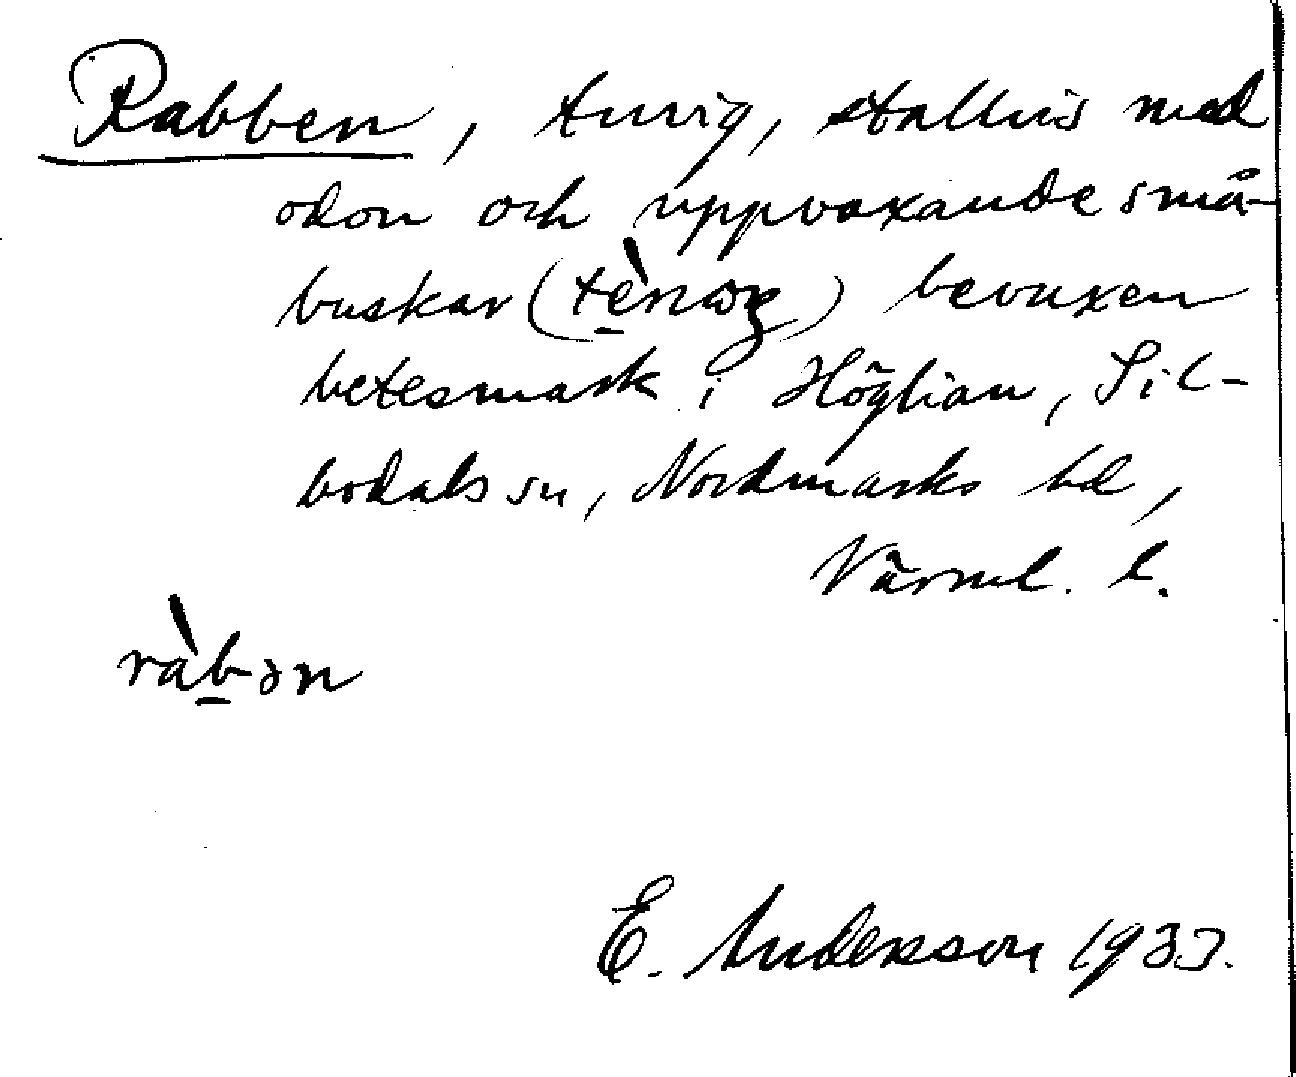 Rabben, tuvig, stallvis med
odon och uppväxande små-
buskar ( ) bevuxen
betesmark i Höglian, Sil-
bodals sn, Nordmarks hd,
Värml. l.
ràbən
E. Andersson 1933.